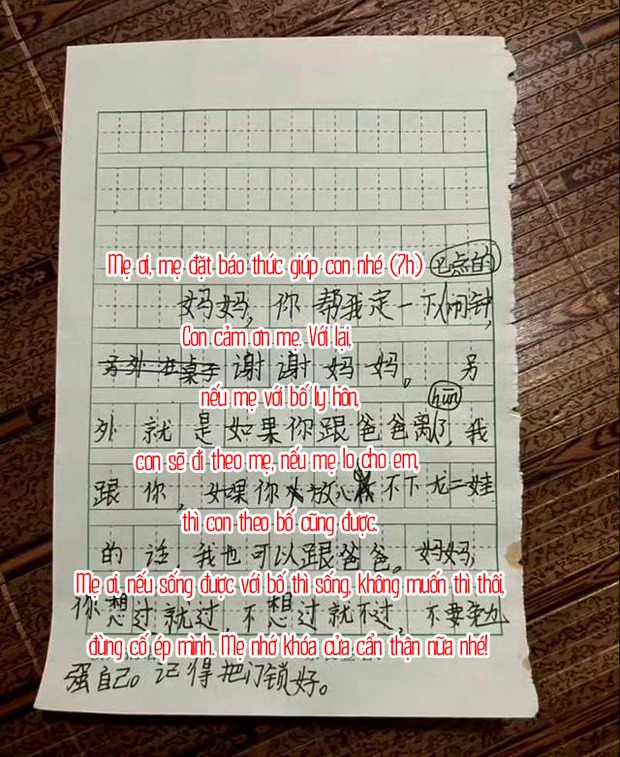 Mẹ ơi, mẹ đặt báo thức giúp con nhé (7h) 七点的
妈妈,你帮我定一下闹钟,
Con cảm ơn mẹ. Với lại,
另外在桌子谢谢妈妈。另
nếu mẹ với bố ly hôn, hūn
外就是如果你跟爸爸离了,我
con sẽ đi theo mẹ, nếu mẹ lo cho em,
跟你,如果你放心不下尤二娃
thì con theo bố cũng được.
的话我也可以跟爸爸。妈妈,
Mẹ ơi, nếu sống được với bố thì sống, không muốn thì thôi,
你想过就过,不想过就不过,不要勉
đừng cố ép mình. Mẹ nhớ khóa cửa cẩn thận nữa nhé!
强自己。记得把门锁好。